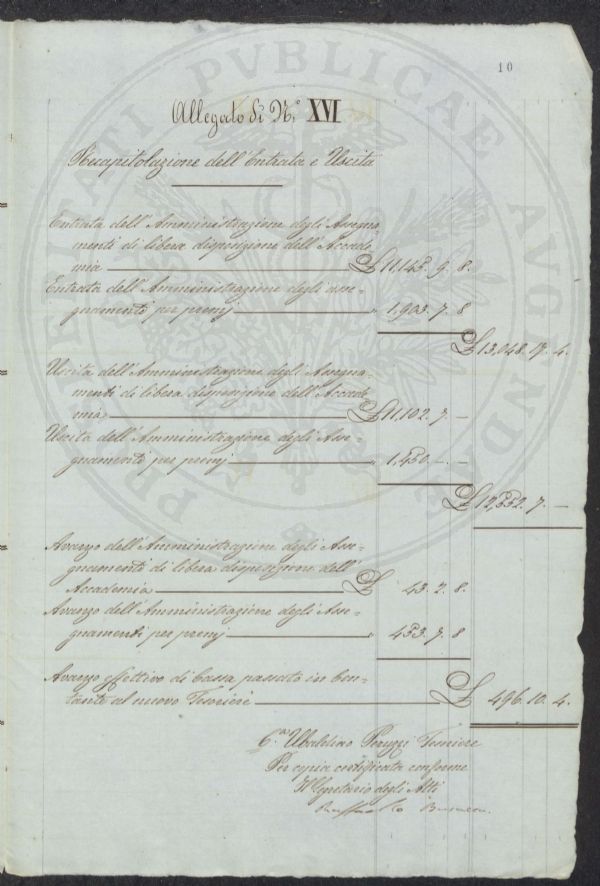 10
Allegato di N.° XVI
Recapitolazione dell'Entrata e Uscita
Entrata dell'Amministrazione degli Assegna
menti di libera disposizione dell'Accade
mia £ 11,145. 9. 8.
Entrata dell'Amministrazione degli asse=
gnamenti per premj " 1,903. 7. 8
£ 13,048. 17. 4.
Uscita dell'Amministrazione degli Assegna
menti di libera disposizione dell'Accade
mia £ 11,102. 7. —
Uscita dell'Amministrazione degli Asse=
gnamenti per premj " 1,450. —. —
£ 12,552. 7. —
Avanzo dell'Amministrazione degli Asse=
gnamenti di libera disposizione dell'
Accademia £ 43. 2. 8.
Avanzo dell'Amministrazione degli Asse=
gnamenti per premj " 453. 7. 8
Avanzo effettivo di Cassa passato in Con=
tanti al nuovo Tesoriere £ 496. 10. 4.
Ubaldino Peruzzi Tesoriere
Per copia certificata conforme
Il Segretario degli Atti
Raffaello
PROSPERITATI PVBLICAE AVGENDAE